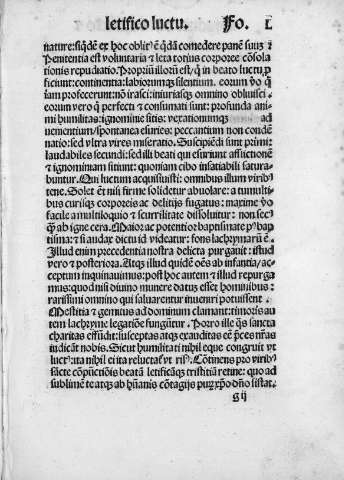 letifico luctu. Fo. L
nature: siq̃dẽ ex hoc oblit᷒ ẽ q̃dã comedere panẽ suũ:
Penitentia est voluntaria ⁊ leta totius corporee cõsola
tionis repudiatio. Propriũ illorũ est/q̃ in beato luctu ꝓ
ficiunt: continentia: labiorũqꝫ silentium. eorum ṽo q̃
iam profecerunt: nõ irasci: iniuriasqꝫ omnino obliuisci.
eorum vero q̃ perfecti ⁊ consumati sunt: profunda ani
mi humilitas: ignominie sitis: vexationumqꝫ ad
uementium/spontanea esuries: peccantium non condẽ
natio: sed vltra vires miseratio. Suscipiẽdi sunt primi:
laudabiles secundi: sed illi beati qui esuriunt afflictionẽ
⁊ ignominiam sitiunt: quoniam cibo insatiabili satura-
buntur. Qui luctum acquisiuisti: omnibus illum virib᷒
tene. Solet eñ nisi firme solidetur abuolare: a tumulti
bus curisqꝫ corporeis ac delitijs fugatus: maxime ṽo
facile a multiloquio ⁊ scurrilitate dissoluitur: non sec᷒
q̃ ab igne cera. Maior ac potentior baptismate p᷒ bap
tisma: ⁊ si audax dictu id videatur: fons lachrymarũ ẽ.
Illud enim precedentia nostra delicta purgauit: istud
vero ⁊ posteriora. Atqꝫ illud quidẽ oẽs ab infantia/ac
ceptum inquinauimus: post hoc autem ⁊ illud repurga
mus: quod nisi diuino munere datus esset hominibus:
rarissimi omnino qui saluarentur inueniri potuissent.
Mestitia ⁊ gemitus ad dominum clamant: timoris au
tem lachryme legatiõe fungũtur. Porro ille q̃s sancta
charitas effũdit: susceptas atqꝫ exauditas eẽ p̃ces nr̃as
indicãt nobis. Sicut humilitati nihil eque congruit vt
luct᷒: ita nihil ei ita reluctaĩ vt ris᷒. Cõtinens pro virib᷒
sacte cõpũctiõis beatã letificãqꝫ tristitiã retine: quo ad
sublimẽ te atqꝫ ab hũanis cõtagijs purũ xp̃o dño sistat.
g ij